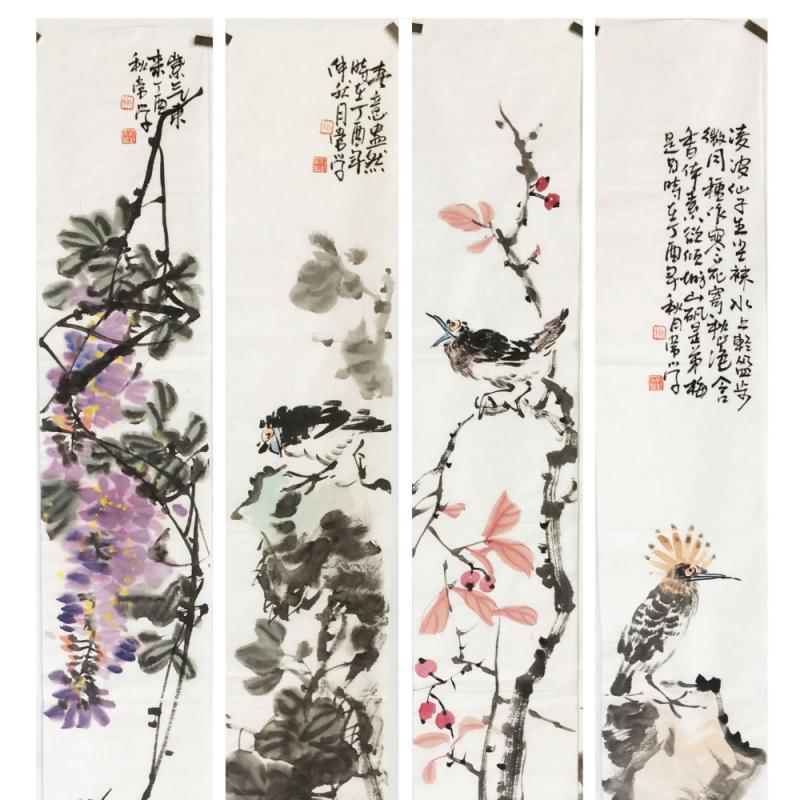 紫气东
来丁酉
秋常学
春意盎然
時在丁酉年
仲秋月常学
凌波仙子生尘袜水上輕盈步
微月種作寒花寄愁绝含
香体素欲倾城山矾是弟梅
是兄時在丁酉年秋月常学